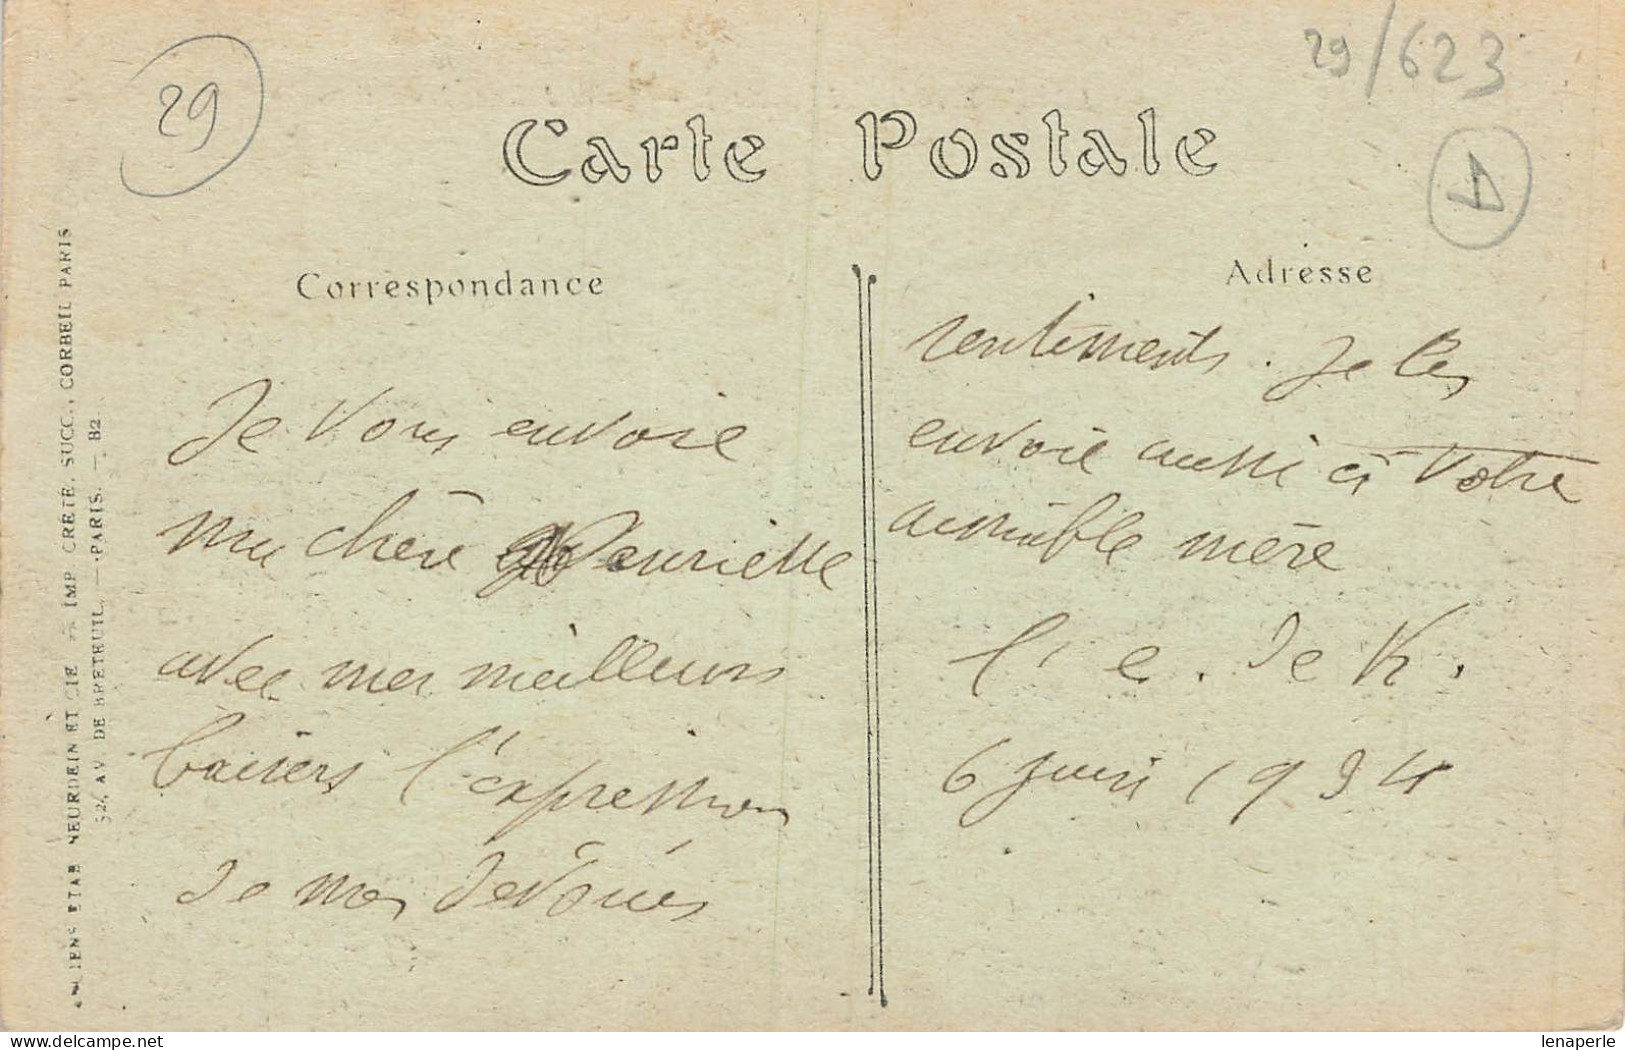 29
29/623
Carte Postale
D
Correspondance
Adresse
Je vous envoie
ma chère Henriette
avec mes meilleurs
baisers l'expression
de mes dévoués
sentiments. Je les
envoie aussi à votre
aimable mère
l' e. de K.
6 juin 1934
ANCIENS ETAB NEURDEIN ET CIE IMP CRÉTÉ, SUCC., CORBEIL PARIS
52, AV. DE BRETEUIL. — PARIS. — B2
lenaperle
delcampe.net